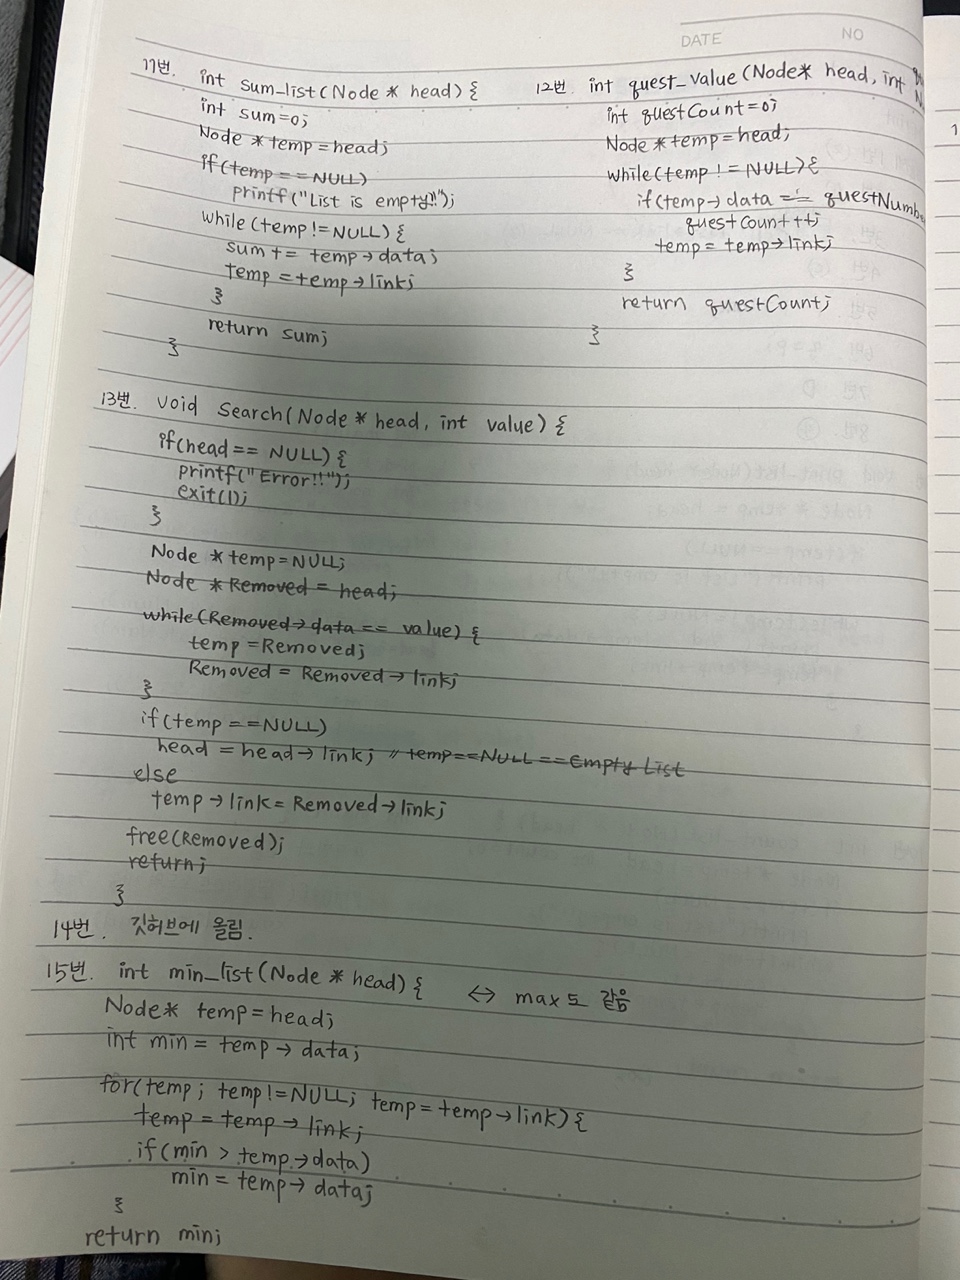 DATE NO
11번. int sum_list(Node * head) {
int sum=0;
Node * temp = head;
if(temp == NULL)
printf("List is empty!!");
while (temp != NULL) {
sum += temp → data;
temp = temp → link;
}
return sum;
}
12번. int quest_value (Node* head, int
int questCount = 0;
Node * temp = head;
while(temp != NULL) {
if(temp → data ==
questCount++;
temp = temp → link;
}
return questCount;
}
1
13번. void Search(Node * head, int value) {
if(head == NULL) {
printf("Error!!");
exit(1);
}
Node * temp = NULL;
Node * Removed = head;
while(Removed → data == value) {
temp = Removed;
Removed = Removed → link;
}
if(temp == NULL)
head = head → link; // temp==NULL == Empty List
else
temp → link = Removed → link;
free(Removed);
return;
}
14번. 깃허브에 올림.
15번. int min_list (Node * head) { ↔ max도 같음
Node* temp = head;
int min = temp → data;
for(temp; temp != NULL; temp = temp → link) {
temp = temp → link;
if(min > temp → data)
min = temp → data;
}
return min;